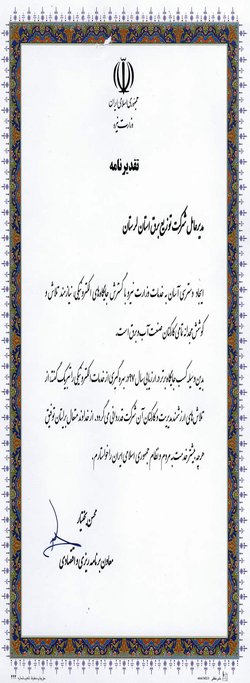 جمهوری اسلامی ایران
وزارت نیرو
تقدیرنامه
مدیرعامل شرکت توزیع برق استان لرستان
ایجاد دسترسی آسان به خدمات وزارت نیرو با گسترش جایگاه‌های الکترونیکی، نیازمند تلاش و
کوشش همه‌جانبه‌ی کارکنان صنعت آب و برق است.
بدین وسیله کسب جایگاه برتر در ارزیابی سال ۱۳۹۲ بهره‌گیری از خدمات الکترونیکی را تبریک گفته، از
تلاش‌های ارزشمند مدیریت و کارکنان آن شرکت قدردانی می‌گردد. از خداوند متعال برایتان توفیق
هرچه بیشتر خدمت به مردم و نظام جمهوری اسلامی ایران را خواستارم.
محسن بختیار
معاون برنامه‌ریزی و اقتصادی